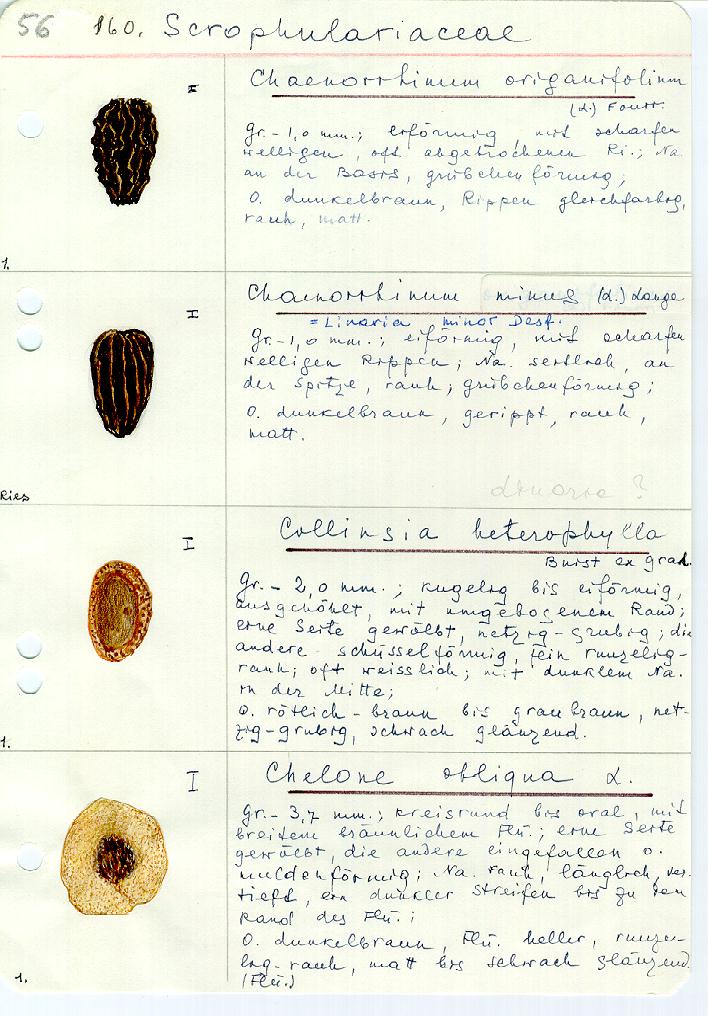 56 160. Scrophulariaceae
I
Chaenorrhinum origanifolium
(L.) Fourr.
Gr. - 1,0 mm.; eiförmig, mit scharfen
welligen, oft abgebrochenen Ri.; Na.
an der Basis, grübchenförmig;
O. dunkelbraun, Rippen gleichfarbig,
rauh, matt.
1.
I
Chaenorrhinum minus (L.) Lange
= Linaria minor Desf.
Gr. - 1,0 mm.; eiförmig, mit scharfen
welligen Rippen; Na. seitlich, an
der Spitze, rauh; grübchenförmig;
O. dunkelbraun, gerippt, rauh,
matt.
Linaria ?
Ries
I
Collinsia heterophylla
Buist ex Grah.
Gr. - 2,0 mm.; kugelig bis eiförmig,
ausgehöhlt, mit umgebogenem Rand;
eine Seite gewölbt, netzig-grubig; die
andere schüsselförmig, fein runzelig-
rauh; oft weisslich; mit dunklem Na.
in der Mitte;
O. rötlich-braun bis graubraun, net-
zig-grubig, schwach glänzend.
1.
I
Chelone obliqua L.
Gr. - 3,7 mm.; kreisrund bis oval, mit
breitem bräunlichem Flü.; eine Seite
gewölbt, die andere eingefallen o.
muldenförmig; Na. rauh, länglich, ver-
tieft, ein dunkler Streifen bis zu dem
Rand des Flü.;
O. dunkelbraun, Flü. heller, runze-
lig-rauh, matt bis schwach glänzend
(Flü.)
1.